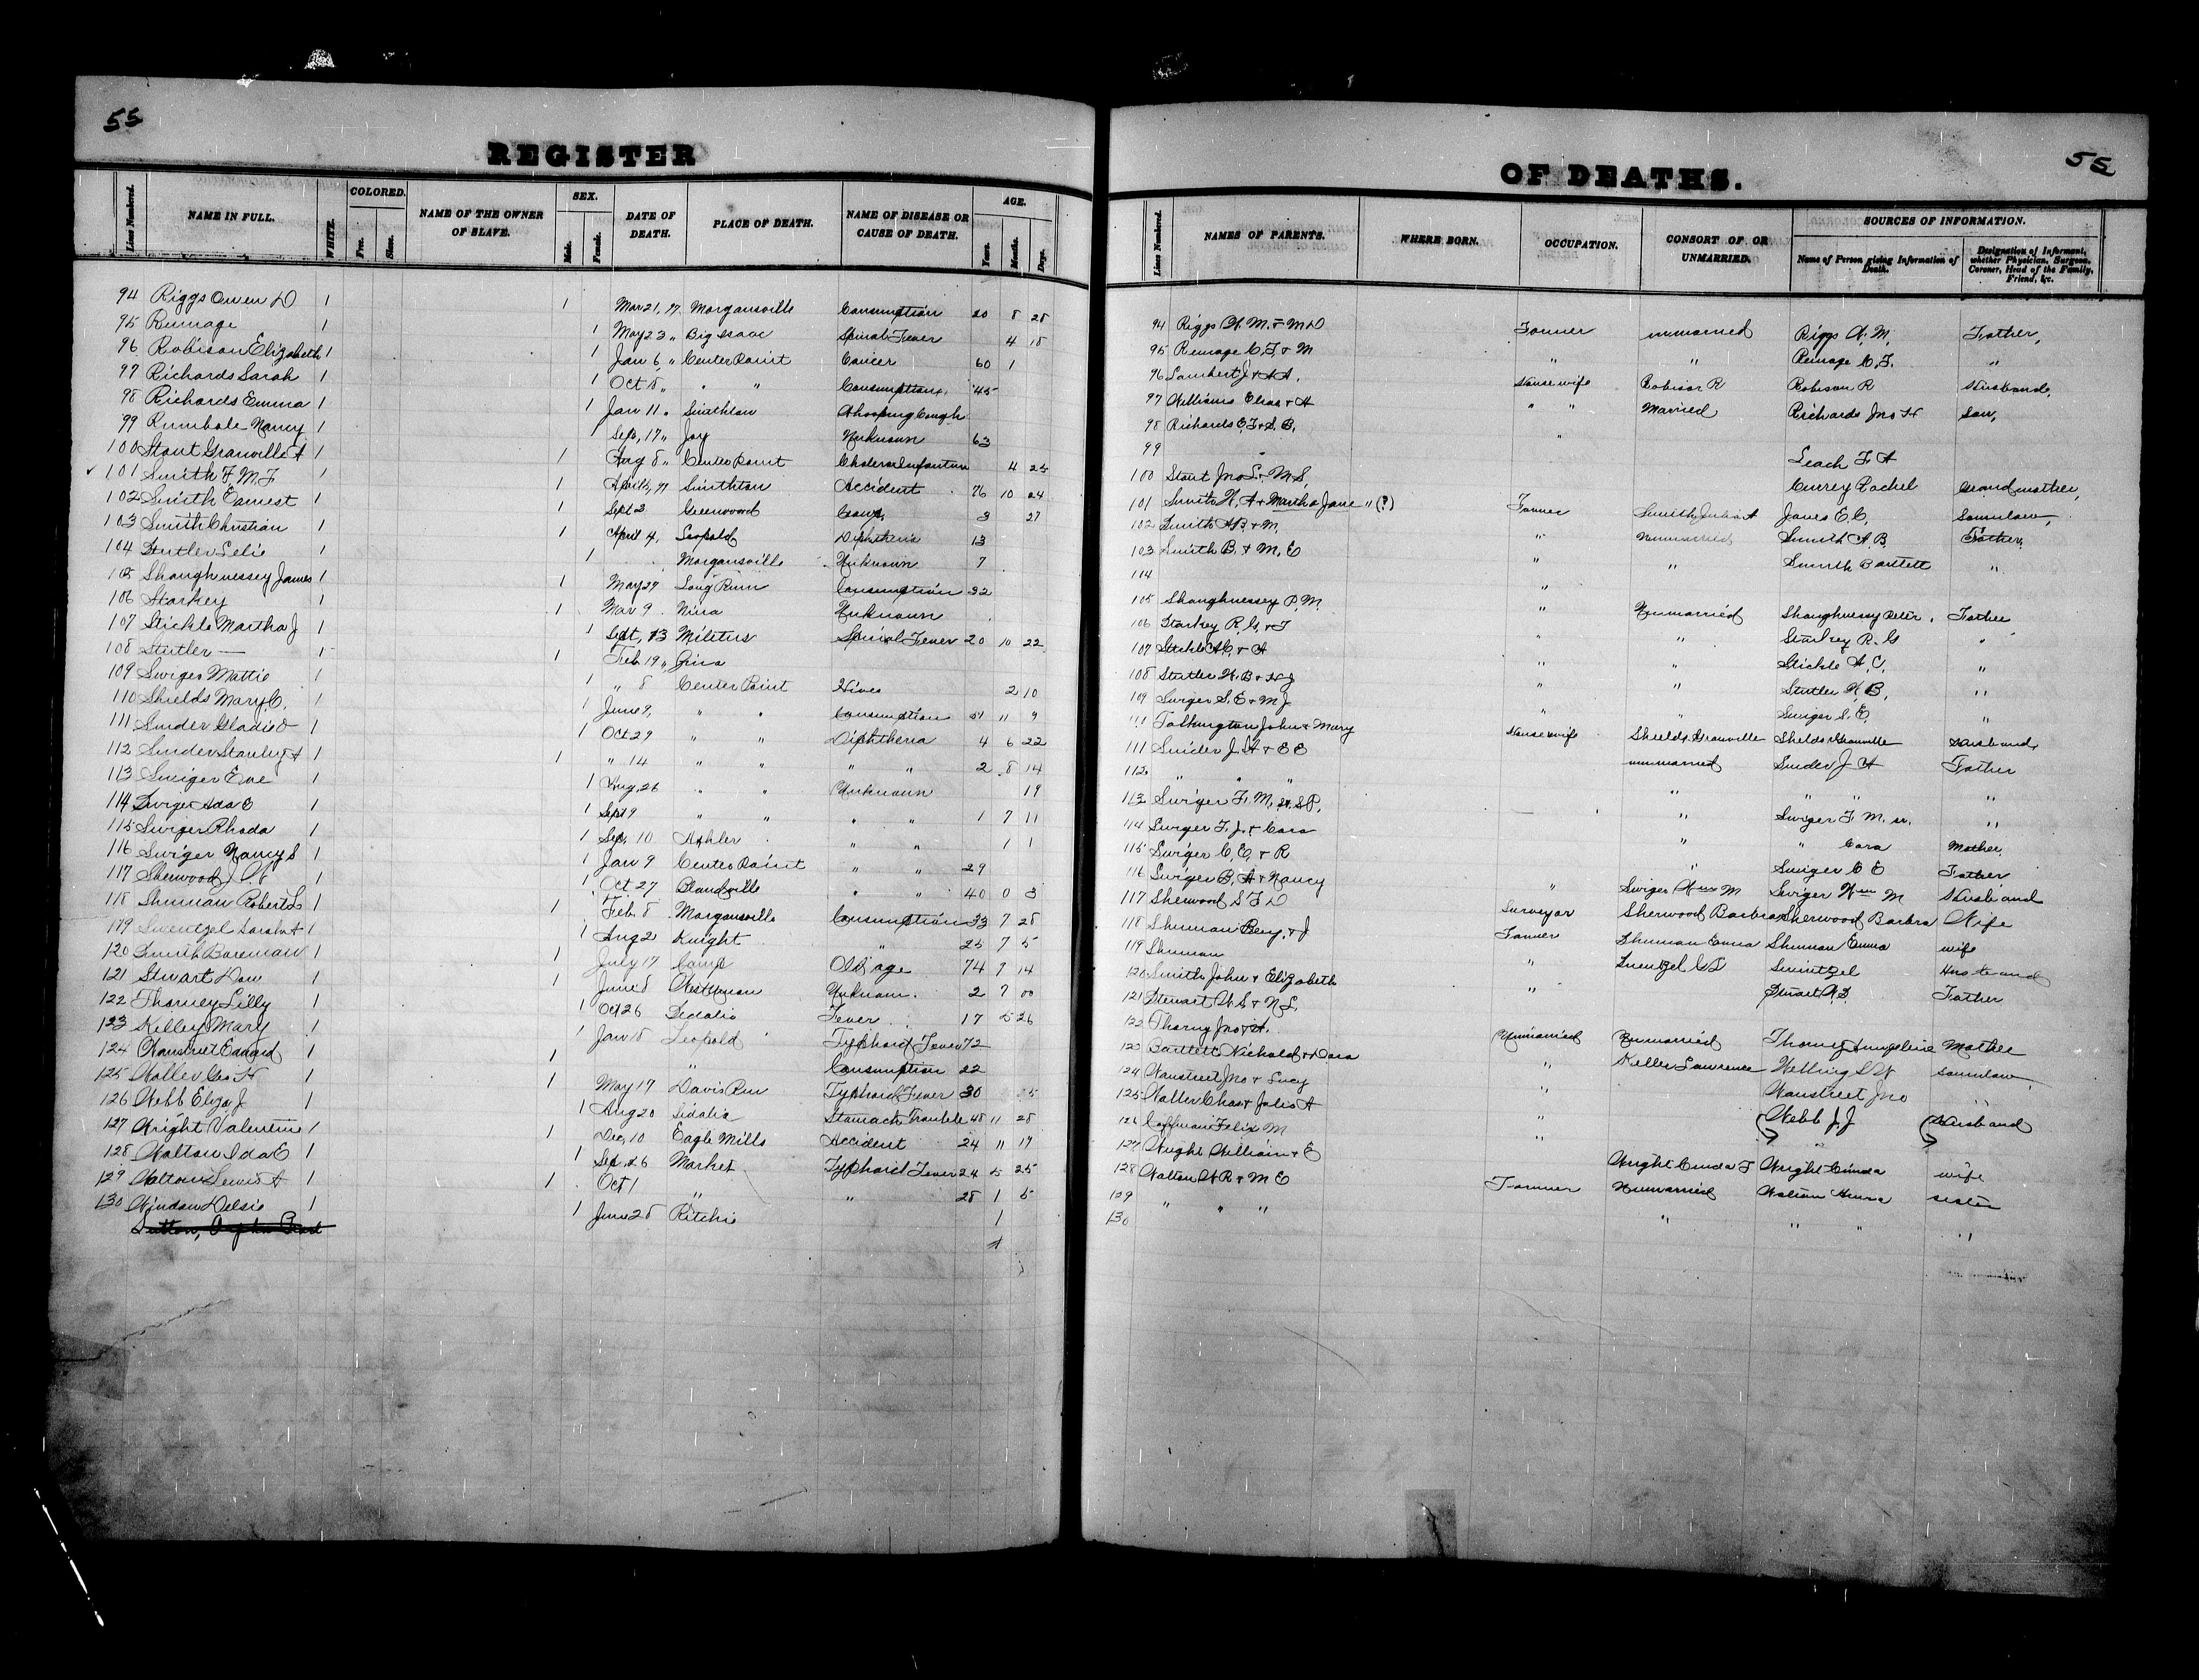 55
REGISTER
Lines Numbered. NAME IN FULL. WHITE. COLORED. Free. Slave. NAME OF THE OWNER OF SLAVE. SEX. Male. Female. DATE OF DEATH. PLACE OF DEATH. NAME OF DISEASE OR CAUSE OF DEATH. AGE. Years. Months. Days.
94 Riggs Owen D 1 1 Mar 21, 97 Morgansville Consumption 20 8 28
95 Rumage 1 1 May 23 " Big Isaac Spinal Fever 4 18
96 Robison Elizabeth 1 1 Jan 6, " Center Point Cancer 60 1
97 Richards Sarah 1 1 Oct 8, " " " Consumption 45
98 Richards Emma 1 1 Jan 11 " Smithton Whooping Cough
99 Rumbole Nancy 1 1 Sep, 17 " Joy Unknown 63
100 Stout Granville A 1 1 Aug 8 " Center Point Cholera Infantum 4 25
101 Smith F. M. F 1 1 Smithton Accident 76 10 24
102 Smith Earnest 1 1 Sept 3 Greenwood Croup 3 27
103 Smith Christian 1 1 April 4, Leopold Diphtheria 13
104 Stutler Lelie 1 1 Morgansville Unknown 7
105 Shaughnessey James 1 1 May 27 Long Run Consumption 32
106 Starkey 1 1 Mar 9 Nina Unknown
107 Stickle Martha J 1 1 Sept, 13 Miletus Spinal Fever 20 10 22
108 Stutler — 1 1 Feb 19 "
109 Swiger Mattie 1 1 " 8 Center Point Hives 2 10
110 Shields Mary C. 1 1 June 9, " " Consumption 51 11 9
111 Snider Gladie O 1 1 Oct 29 " " Diphtheria 4 6 22
112 Snider Stanley A 1 1 " 14 " " " " 2 8 14
113 Swiger Eve 1 1 Aug 26 " " Unknown 19
114 Swiger Ada E 1 1 Sept 9 " " " " 1 7 11
115 Swiger Rhoda 1 1 Sep, 10 Ashler " " 1 1
116 Swiger Nancy S 1 1 Jan 9 Center Point " " 29
117 Sherwood J. W 1 1 Oct 27 Blandville " " 40 0 3
118 Shuman Robert L 1 1 Feb. 8 Morgansville Consumption 33 7 28
119 Swentzel Sarah A 1 1 Aug 2 Knight " 25 7 5
120 Smith Boreman 1 1 July 17 Camp Old age 74 9 14
121 Stuart Dow 1 1 June 8 West Union Unknown 2 7 00
122 Thorney Lilly 1 Oct 26 Sedalia Fever 17 5 26
123 Killey Mary 1 1 Jan 18 Leopold Typhoid Fever 72
124 Wanstreet Edward 1 1 " Consumption 22
125 Waller Geo H 1 1 May 17 Davis Run Typhoid Fever 30 5
126 Webb Eliza J 1 1 Aug 20 Sedalia Stomach Trouble 48 11 28
127 Wright Valentine 1 1 Dec, 10 Eagle Mills Accident 24 11 19
128 Walton Ida E 1 1 Sep 26 Market Typhoid Fever 24 5 25
129 Walton Lewis A 1 1 Oct 1 " " 28 1 5
130 Windom Delsie 1 1 June 28 Ritchie 1
55
OF DEATHS.
Lines Numbered. NAMES OF PARENTS. WHERE BORN. OCCUPATION. CONSORT OF OR UNMARRIED. SOURCES OF INFORMATION. Name of Person giving Information of Death. Designation of Informant, whether Physician, Surgeon, Coroner, Head of the Family, Friend, &c.
94 Riggs W. M. & M D Farmer unmarried Riggs W. M. Father,
95 Rumage C. F. & M " " Rumage C. F. "
96 Lambert J. & A A. House wife Robison R Robison R Husband,
97 Williams Elias & A " " Married Richards Jno H son,
98 Richards E. F & S. B. "
99 " Leach F. A
100 Stout Jno S. & M. S, Currey Rachel Grandmother,
101 Smith W, A & Martha Jane " (?) Farmer Smith Julia A Jones E. C. Soninlaw,
102 Smith A B & M. " Unmarried Smith A. B. Father,
103 Smith B. & M, E " " Smith Bartlett "
114 "
105 Shaughnessey P. M. " Unmarried Shaughnessy Peter, Father
106 Starkey R. G. & F " " Starkey R. G "
107 Stickle A C. & A " " Stickle A, C, "
108 Stutler W. B & H J " " Stutler W. B, "
109 Swiger S. E & M J " " Swiger S. E "
111 Talkington John & Mary House wife Shields Granville Shields Granville Husband
111 Snider J. A & E E unmarried Snider J A Father
112 " " " " " " "
113 Swiger F. M, sr. S P. " Swiger F. M sr. "
114 Swiger F. J. & Cora " " Cora Mother
115 Swiger C, E, & R " Swiger C E Father
116 Swiger B, A & Nancy " Swiger Wm M Swiger Wm M Husband
117 Sherwood S F D Surveyor Sherwood Barbra Sherwood Barbra Wife
118 Shuman Benj. & J Farmer Shuman Emma Shuman Emma wife
119 Shuman " Swentzel Husband
120 Smith John & Elizabeth " Stuart W S. Father
121 Stewart W. S & N S.
122 Thorny Jno & A. Unmarried Unmarried Thorney Angeline Mother
123 Bartlett Nicholas & Dora " Killey Lawrence Soninlaw,
124 Wanstreet Jno & Lucy " Wanstreet Jno "
125 Waller Chas & Julia A " Webb J. J Husband
126 Coffman Felix M "
127 Wright William & E Wright Cinda F Wright Cinda wife
128 Walton W R & M E Farmer Unmarried Walton sister
129 " " " " " " "
130